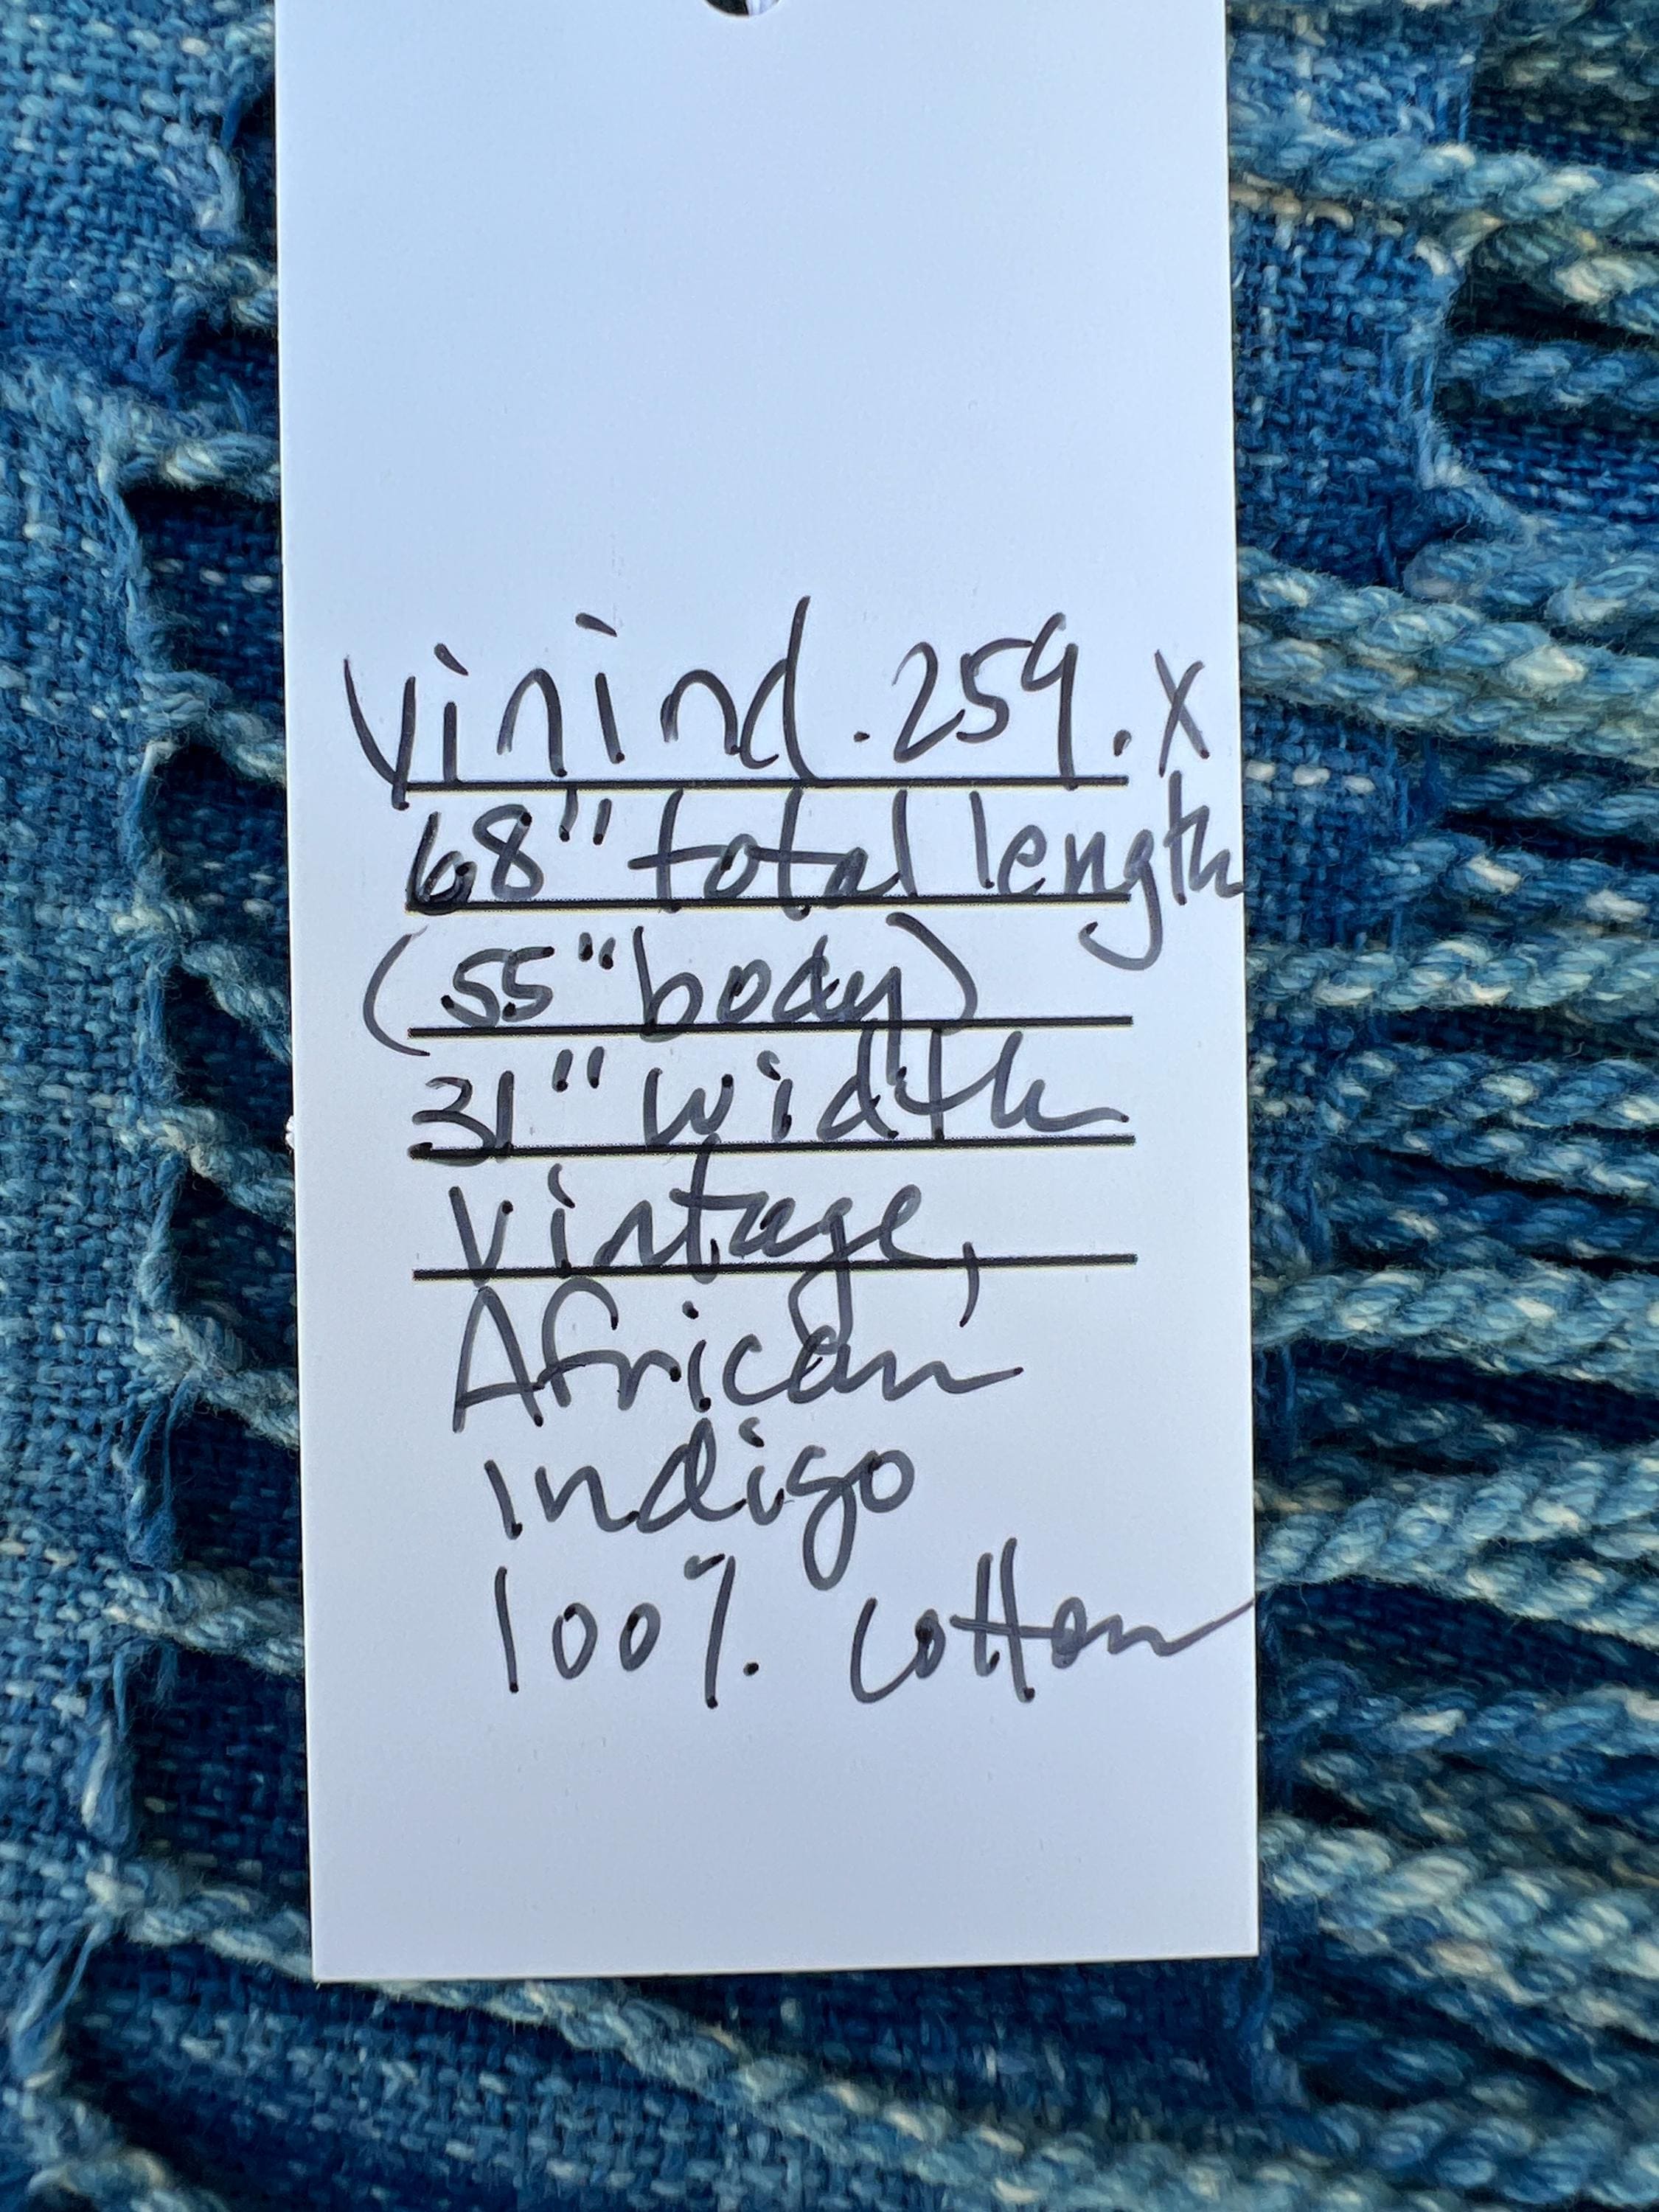 vinind.259.x
68" total length
(55" body)
31" width
Vintage,
African
indigo
100% cotton